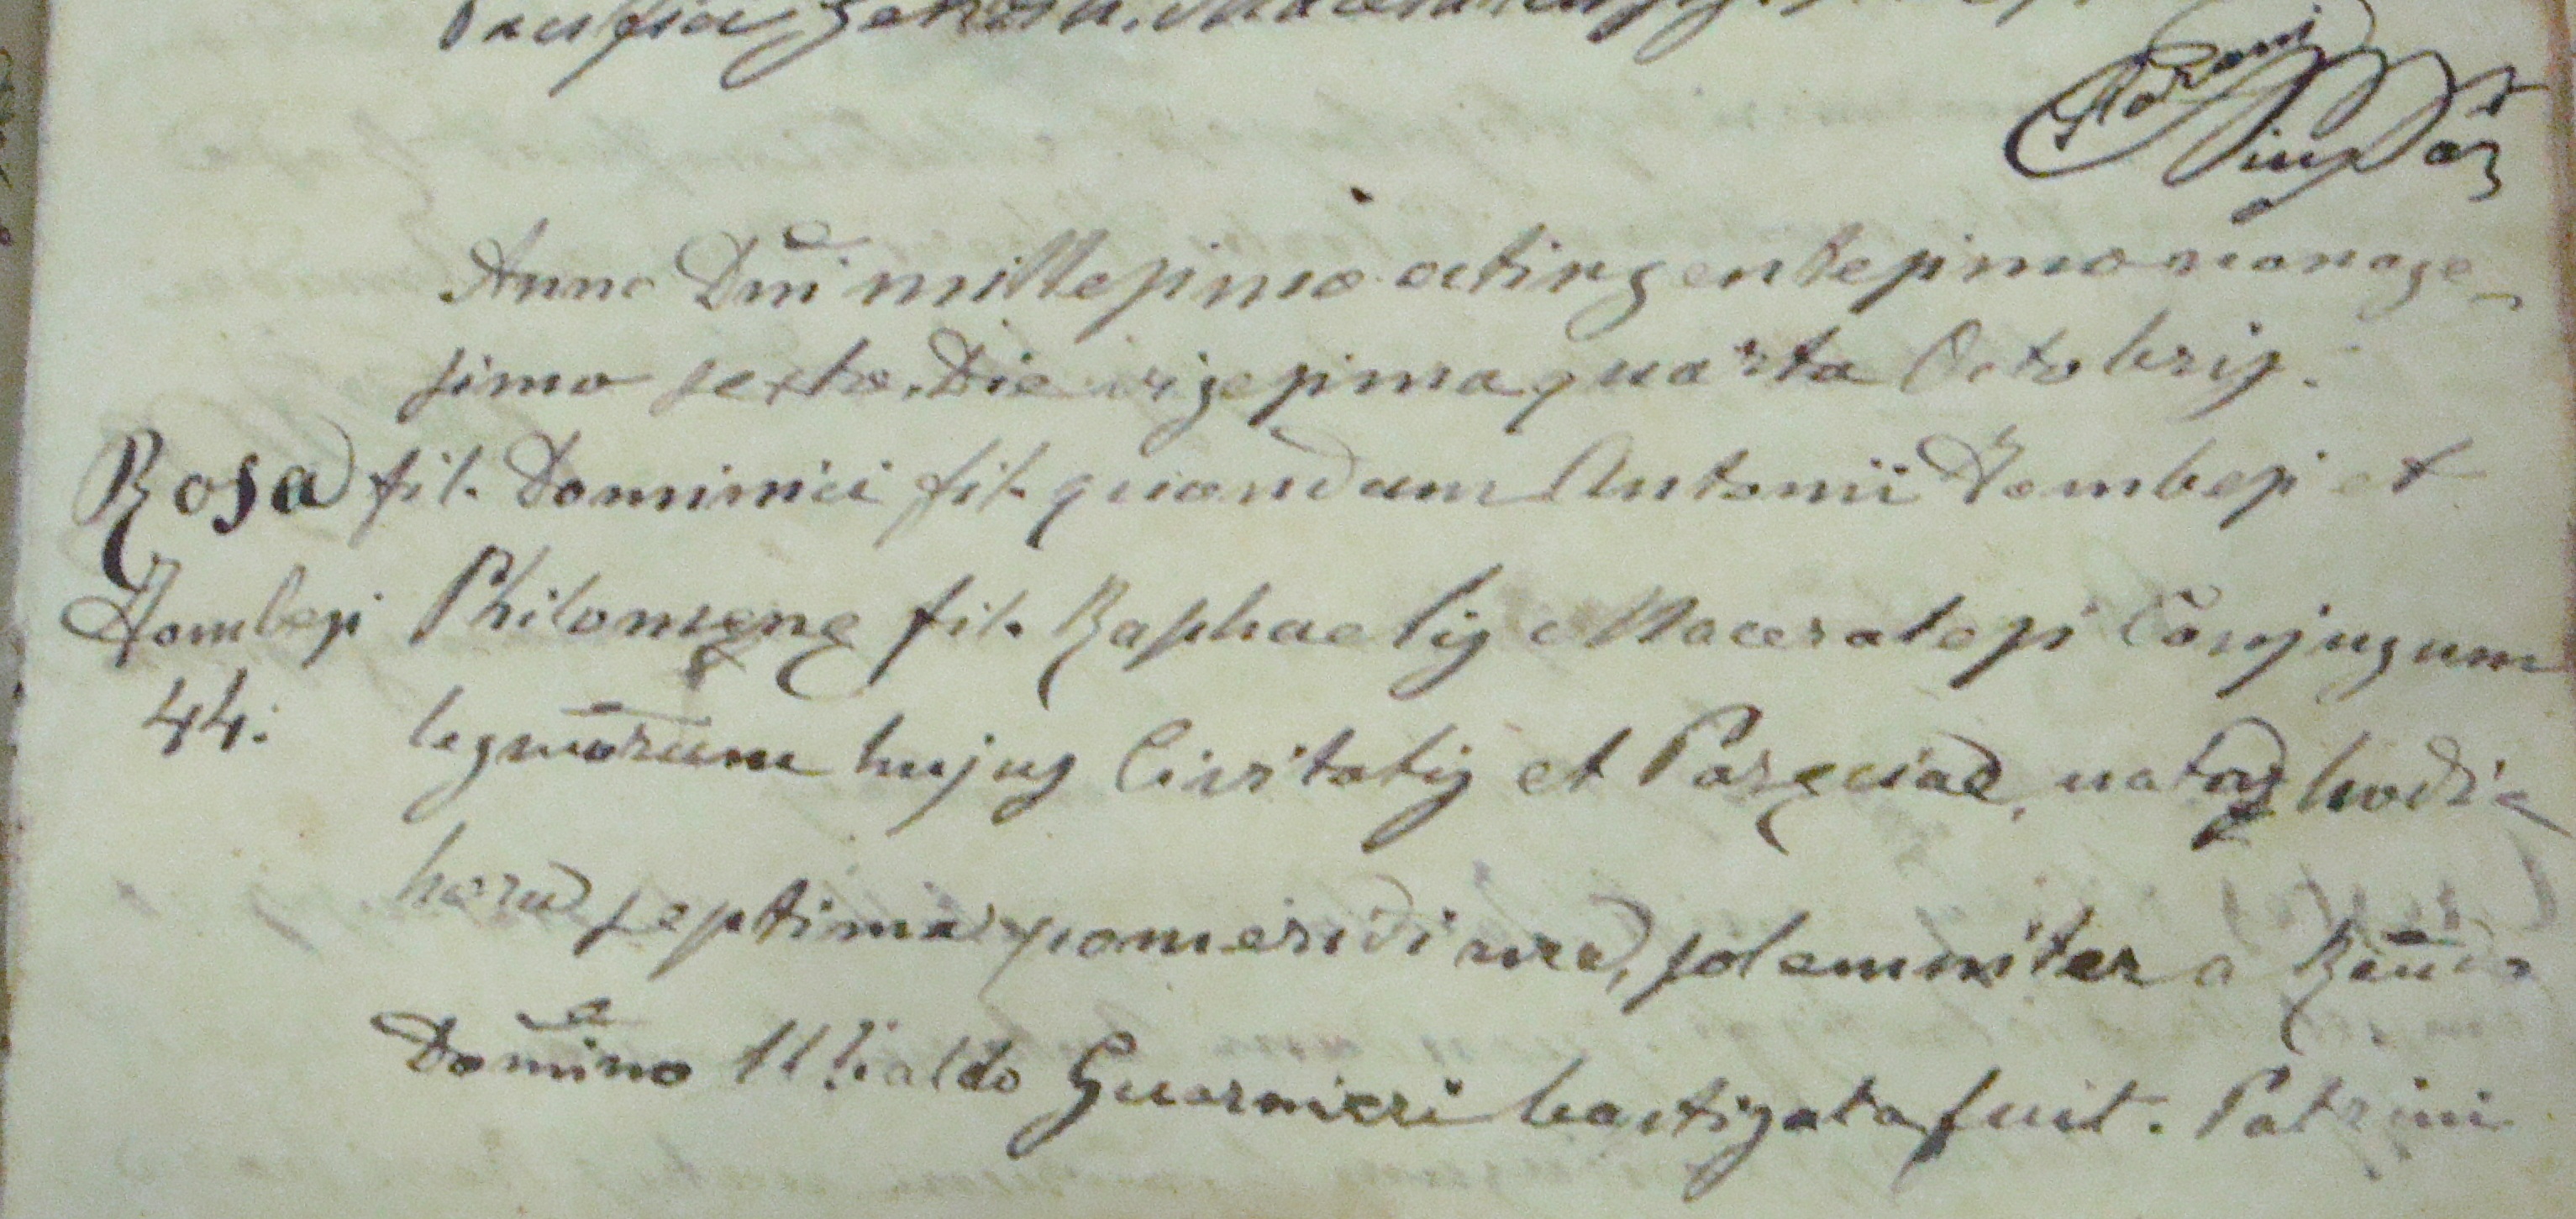 Anno Dñi millesimo octingentesimo nonage-
simo sexto. Die vigesima quarta Octobris.
Rosa fil. Dominici fil. quondam Antonii Tombesi et
Tombesi Philomenæ fil. Raphaelis Maceratesi Cõnjugum
44. legmõrum hujus Civitatis et Parœciae, nata hodie
hora septima pomeridiana, solemniter a Rẽndo
Domĩno Ubaldo Guarnieri baptizata fuit. Patrini